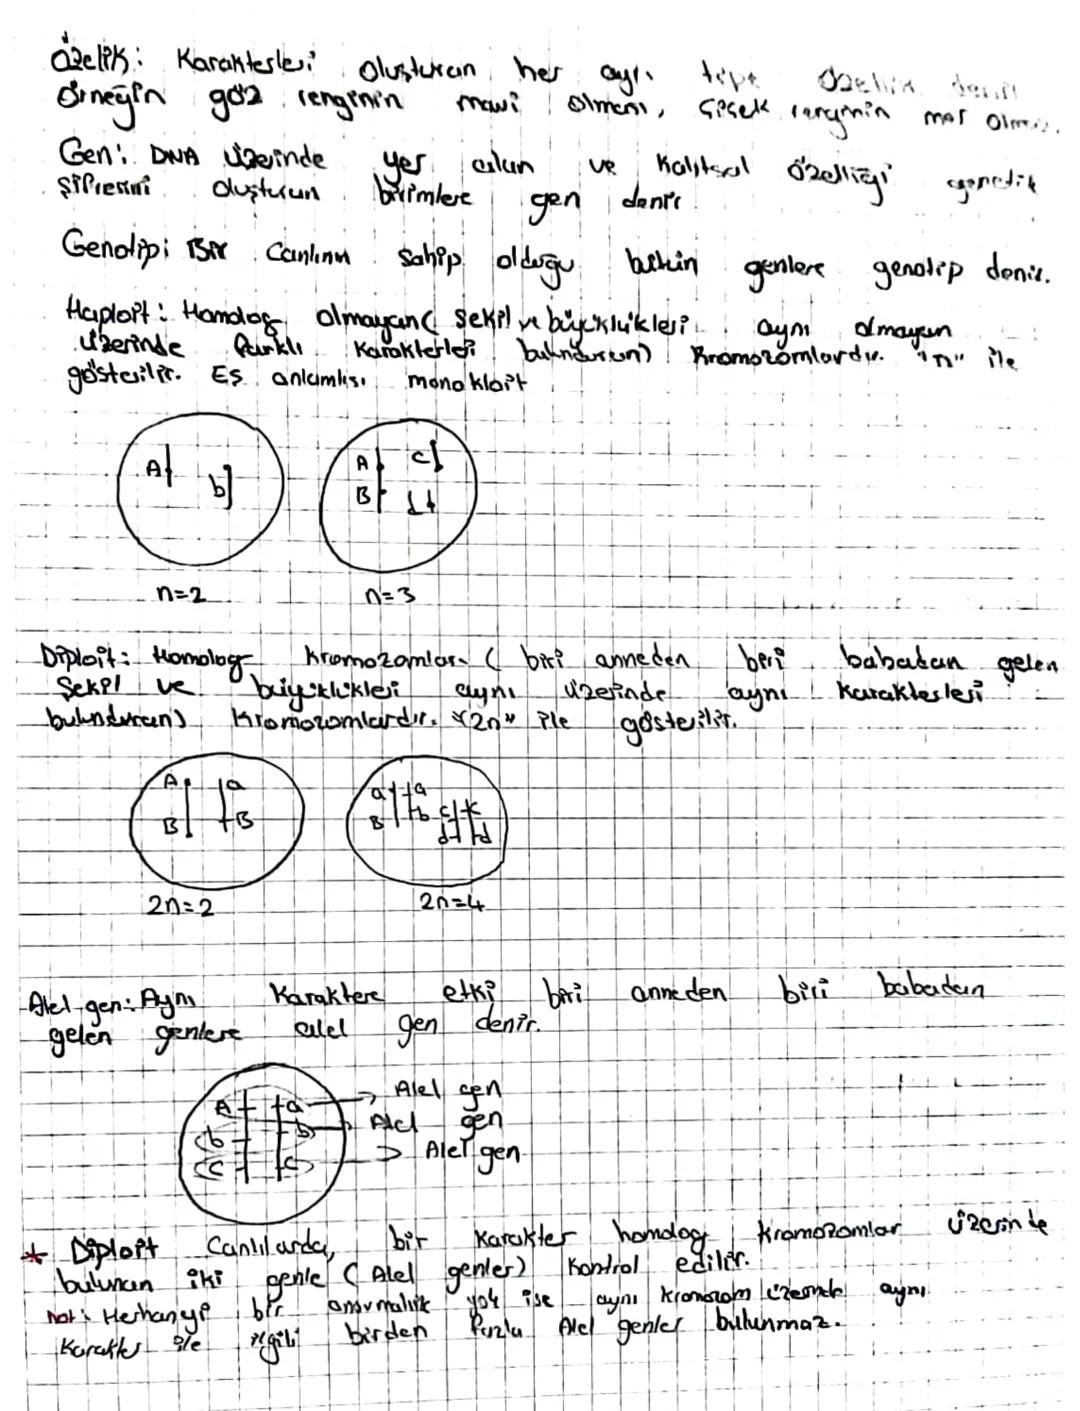 Özelik: Karakterleri oluşturan her ayrı tipe özellik denir
Örneğin göz renginin mavi olması, çiçek renginin mor olması.
Gen: DNA üzerinde yer alan ve kalıtsal özelliği genetik
şifresini oluşturan birimlere gen denir
Genotip: Bir canlının sahip olduğu bütün genlere genotip denir.
Haploit: Homolog olmayan( şekil ve büyüklükleri aynı olmayan
üzerinde farklı karakterleri bulunduran) kromozomlardır. "n" ile
gösterilir. Eş anlamlısı monokloit
A b
A c
B d
n=2 n=3
Diploit: Homolog kromozomlar ( biri anneden biri babadan gelen
şekil ve büyüklükleri aynı üzerinde aynı karakterleri
bulunduran) kromozomlardır. "2n" ile gösterilir.
A a
B B
a a
B b c c
d d
2n=2 2n=4
Alel gen: Aynı karaktere etki biri anneden biri babadan
gelen genlere alel gen denir.
A a → Alel gen
b b → Alel gen
c c → Alel gen
* Diploit canlılarda, bir karakter homolog kromozomlar üzerinde
bulunan iki genle ( Alel genler) kontrol edilir.
not: Herhangi bir anormallik yok ise aynı kromozom üzerinde aynı
karakter ile ilgili birden fazla Alel genler bulunmaz.